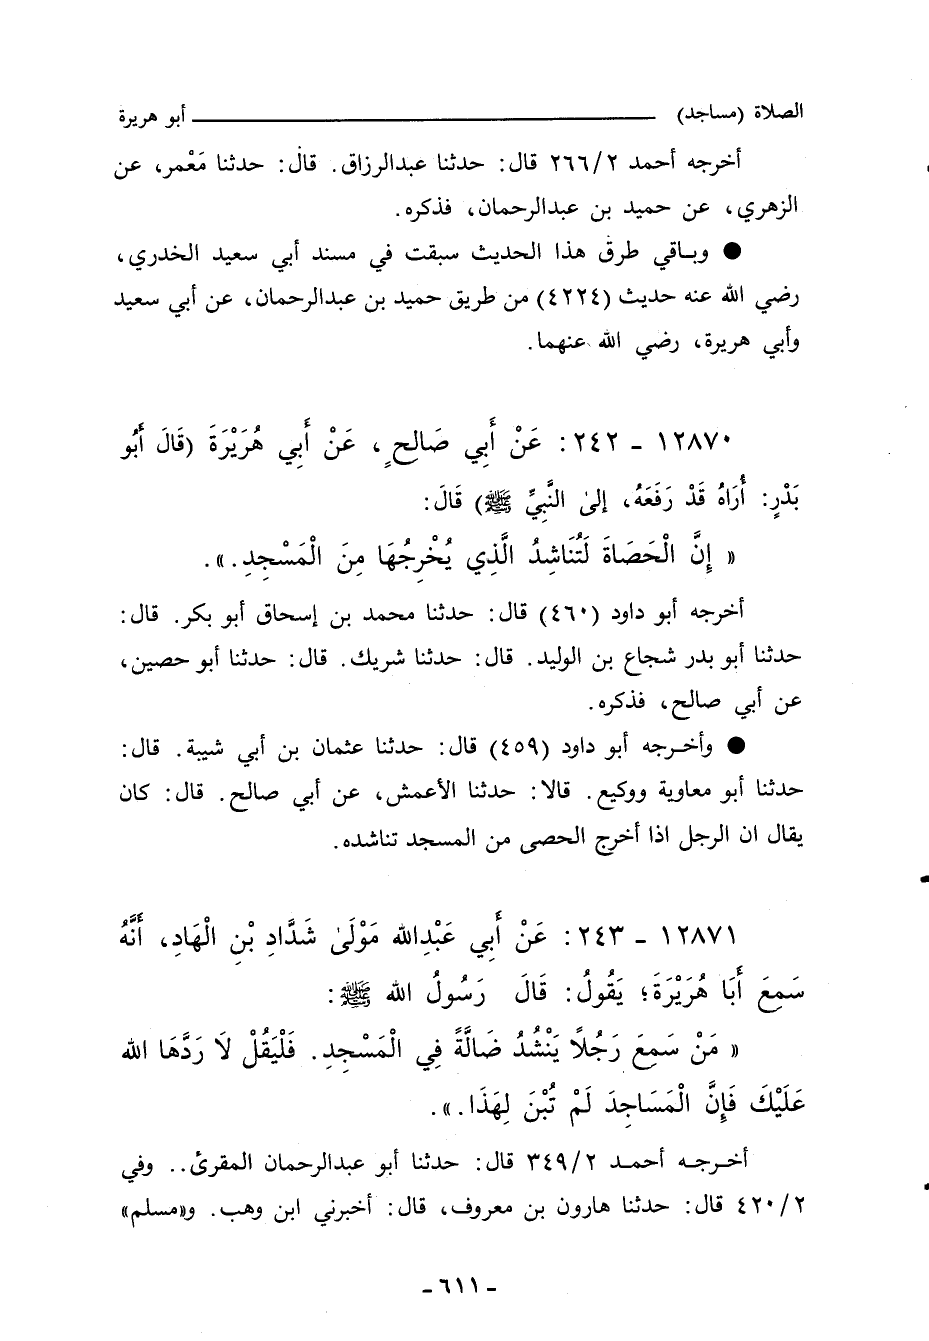 الصلاة (مساجد) ــــــــ أبو هريرة
أخرجه أحمد ٢/٢٦٦ قال: حدثنا عبدالرزاق. قال: حدثنا مَعْمر، عن
الزهري، عن حميد بن عبدالرحمان، فذكره.
● وبـاقي طرق هذا الحديث سبقت في مسند أبي سعيد الخدري،
رضي الله عنه حديث (٤٢٢٤) من طريق حميد بن عبدالرحمان، عن أبي سعيد
وأبي هريرة، رضي الله عنهما.
١٢٨٧٠ - ٢٤٢: عَنْ أَبِي صَالحٍ، عَنْ أَبِي هُرَيْرَةَ (قَالَ أَبُو
بَدْرٍ: أُرَاهُ قَدْ رَفَعَهُ، إلىٰ النَّبِيِّ ﷺ) قَالَ:
« إِنَّ الْحَصَاةَ لَتُنَاشِدُ الَّذِي يُخْرِجُهَا مِنَ الْمَسْجِدِ. ».
أخرجه أبو داود (٤٦٠) قال: حدثنا محمد بن إسحاق أبو بكر. قال:
حدثنا أبو بدر شجاع بن الوليد. قال: حدثنا شريك. قال: حدثنا أبو حصين،
عن أبي صالح، فذكره.
● وأخـرجه أبو داود (٤٥٩) قال: حدثنا عثمان بن أبي شيبة. قال:
حدثنا أبو معاوية ووكيع. قالا: حدثنا الأعمش، عن أبي صالح. قال: كان
يقال ان الرجل اذا أخرج الحصى من المسجد تناشده.
١٢٨٧١ - ٢٤٣: عَنْ أَبِي عَبْدِالله مَوْلَىٰ شَدَّادِ بْنِ الْهَادِ، أَنَّهُ
سَمِعَ أَبَا هُرَيْرَةَ؛ يَقُولُ: قَالَ رَسُولُ الله ﷺ:
« مَنْ سَمِعَ رَجُلاً يَنْشُدُ ضَالَّةً فِي الْمَسْجِدِ. فَلْيَقُلْ لَا رَدَّهَا الله
عَلَيْكَ فَإِنَّ الْمَسَاجِدَ لَمْ تُبْنَ لِهَذَا. ».
أخـرجـه أحمـد ٢/٣٤٩ قال: حدثنا أبو عبدالرحمان المقرئ.. وفي
٢/٤٢٠ قال: حدثنا هارون بن معروف، قال: أخبرني ابن وهب. و«مسلم»
- ٦١١ -